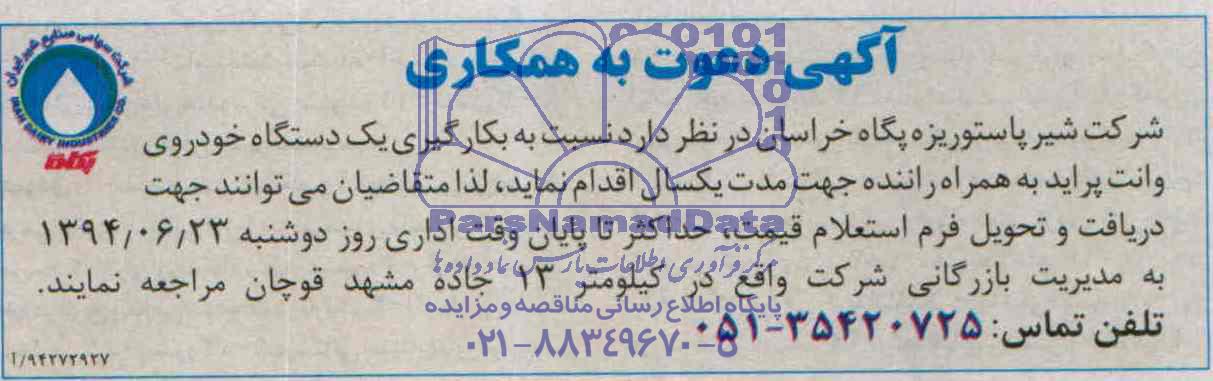 آگهی دعوت به همکاری
شرکت سهامی صنایع شیر ایران
IRAN DAIRY INDUSTRIES CO.
پگاه
شرکت شیر پاستوریزه پگاه خراسان در نظر دارد نسبت به بکارگیری یک دستگاه خودروی
وانت پراید به همراه راننده جهت مدت یکسال اقدام نماید، لذا متقاضیان می توانند جهت
دریافت و تحویل فرم استعلام قیمت، حداکثر تا پایان وقت اداری روز دوشنبه ۱۳۹۴/۰۶/۲۳
به مدیریت بازرگانی شرکت واقع در کیلومتر ۱۳ جاده مشهد قوچان مراجعه نمایند.
تلفن تماس: ۳۵۴۲۰۷۲۵-۰۵۱
۱/۹۴۲۷۲۹۲۷
ParsNamadData
مرکز فرآوری اطلاعات پارس نماد داده ها
پایگاه اطلاع رسانی مناقصه و مزایده
۰۲۱-۸۸۳۴۹۶۷۰-۵